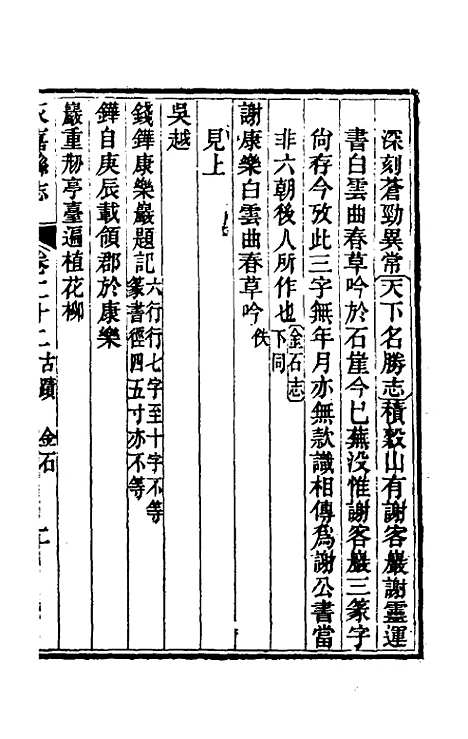 深刻蒼勁異常天下名勝志積穀山有謝客巖謝靈運
書白雲曲春草吟於石崖今已蕪没惟謝客巖三篆字
尙存今攷此三字無年月亦無款識相傳爲謝公書當
非六朝後人所作也金石志下同
謝康樂白雲曲春草吟佚
見上
吳越
錢鏵康樂巖題記六行行七字至十字不等篆書徑四五寸亦不等
鏵自庚辰載領郡於康樂
巖重剏亭臺遍植花柳
永嘉縣志 卷二十二 古蹟 金石 二